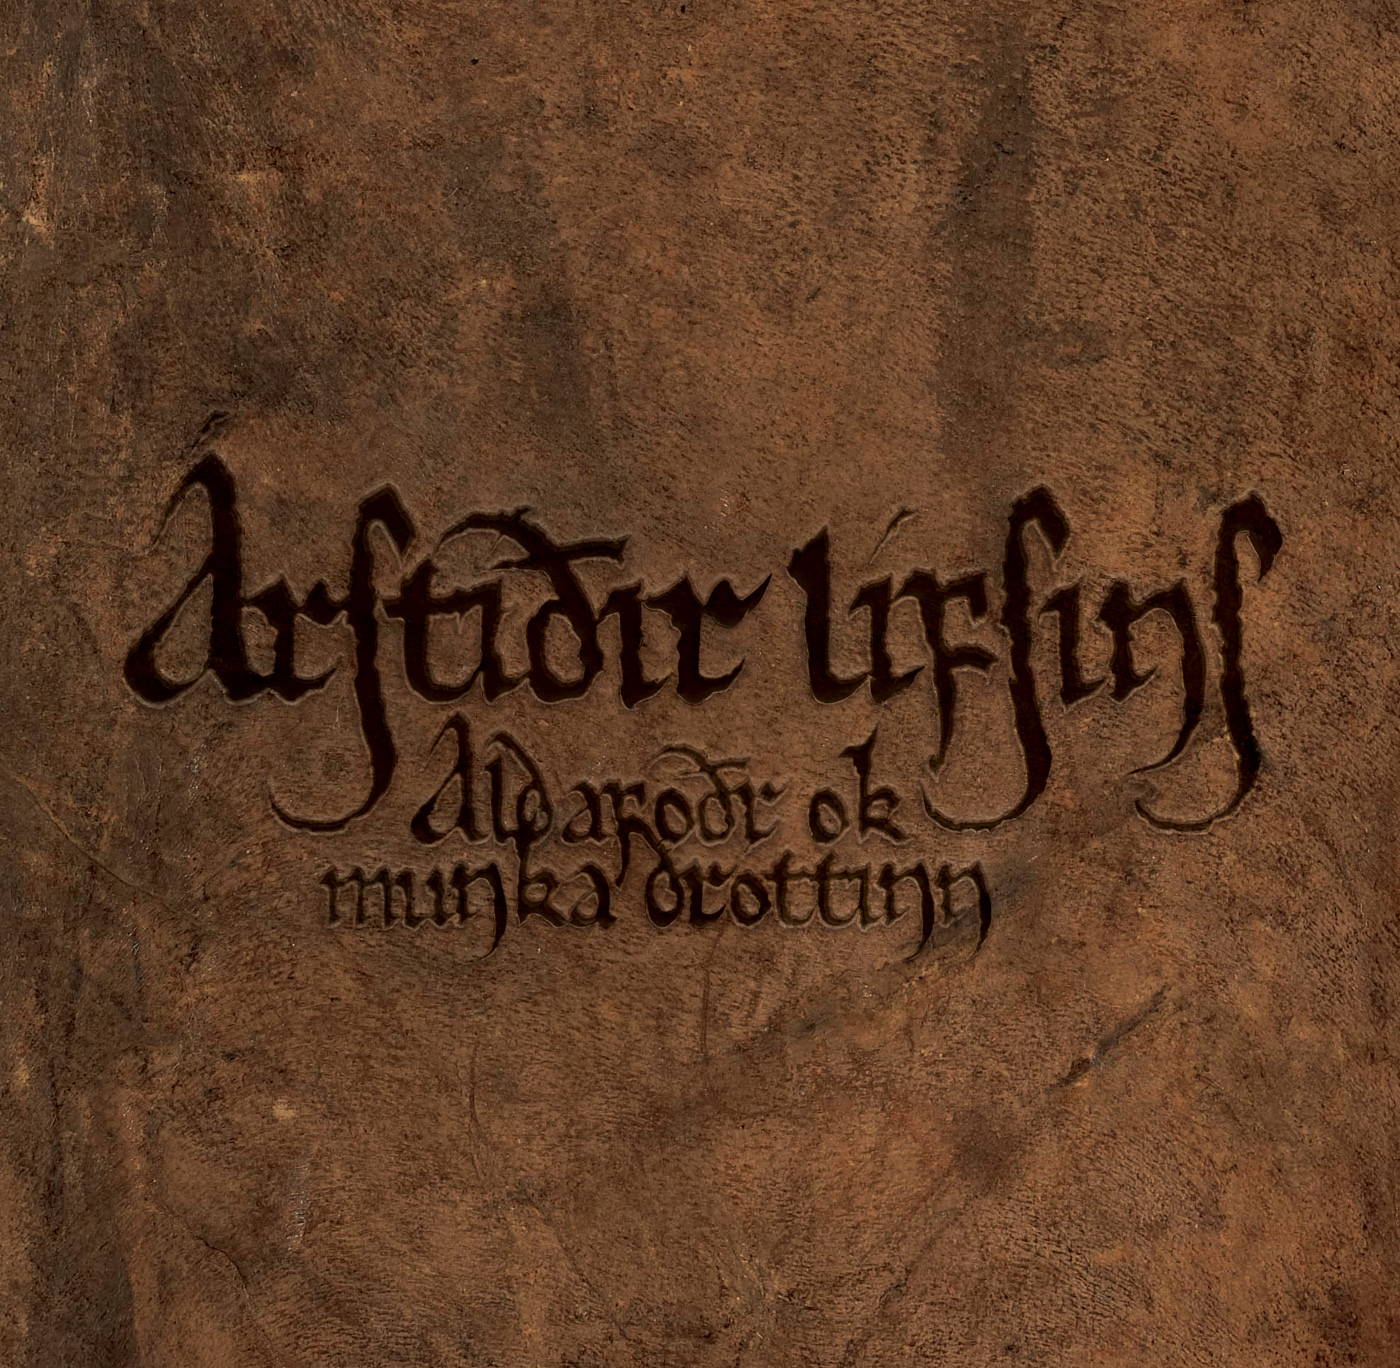 Árstíðir lífsins
Aldafǫðr ok
munka drottinn